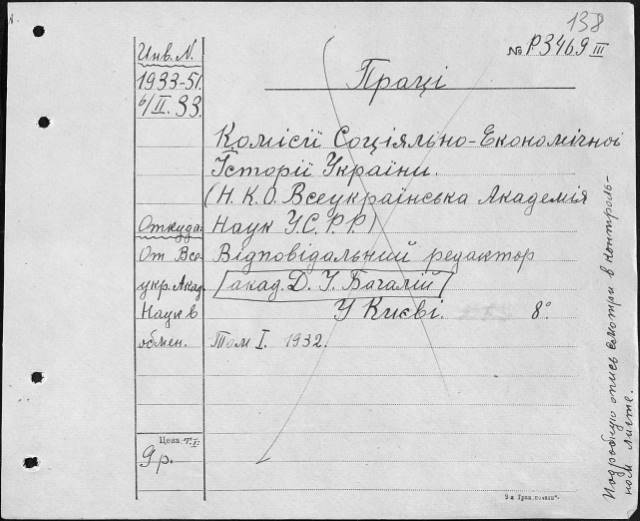 138
№ Р3469 III
Инв. N.
1933-51
6/II. 33.
Праці
Комісії Соціяльно-Економічної
Історії України.
(Н.К.О. Всеукраїнська Академія
Наук У.С.Р.Р)
Откуда:
От Все-
укр. Акад.
Наук в
обмен.
Відповідальний редактор
[акад. Д. І. Багалій]
У Київі. 8°
Том I. 1932.
Цена т. I.
9 р.
Подробную опись смотри в контроль-
ном листе.